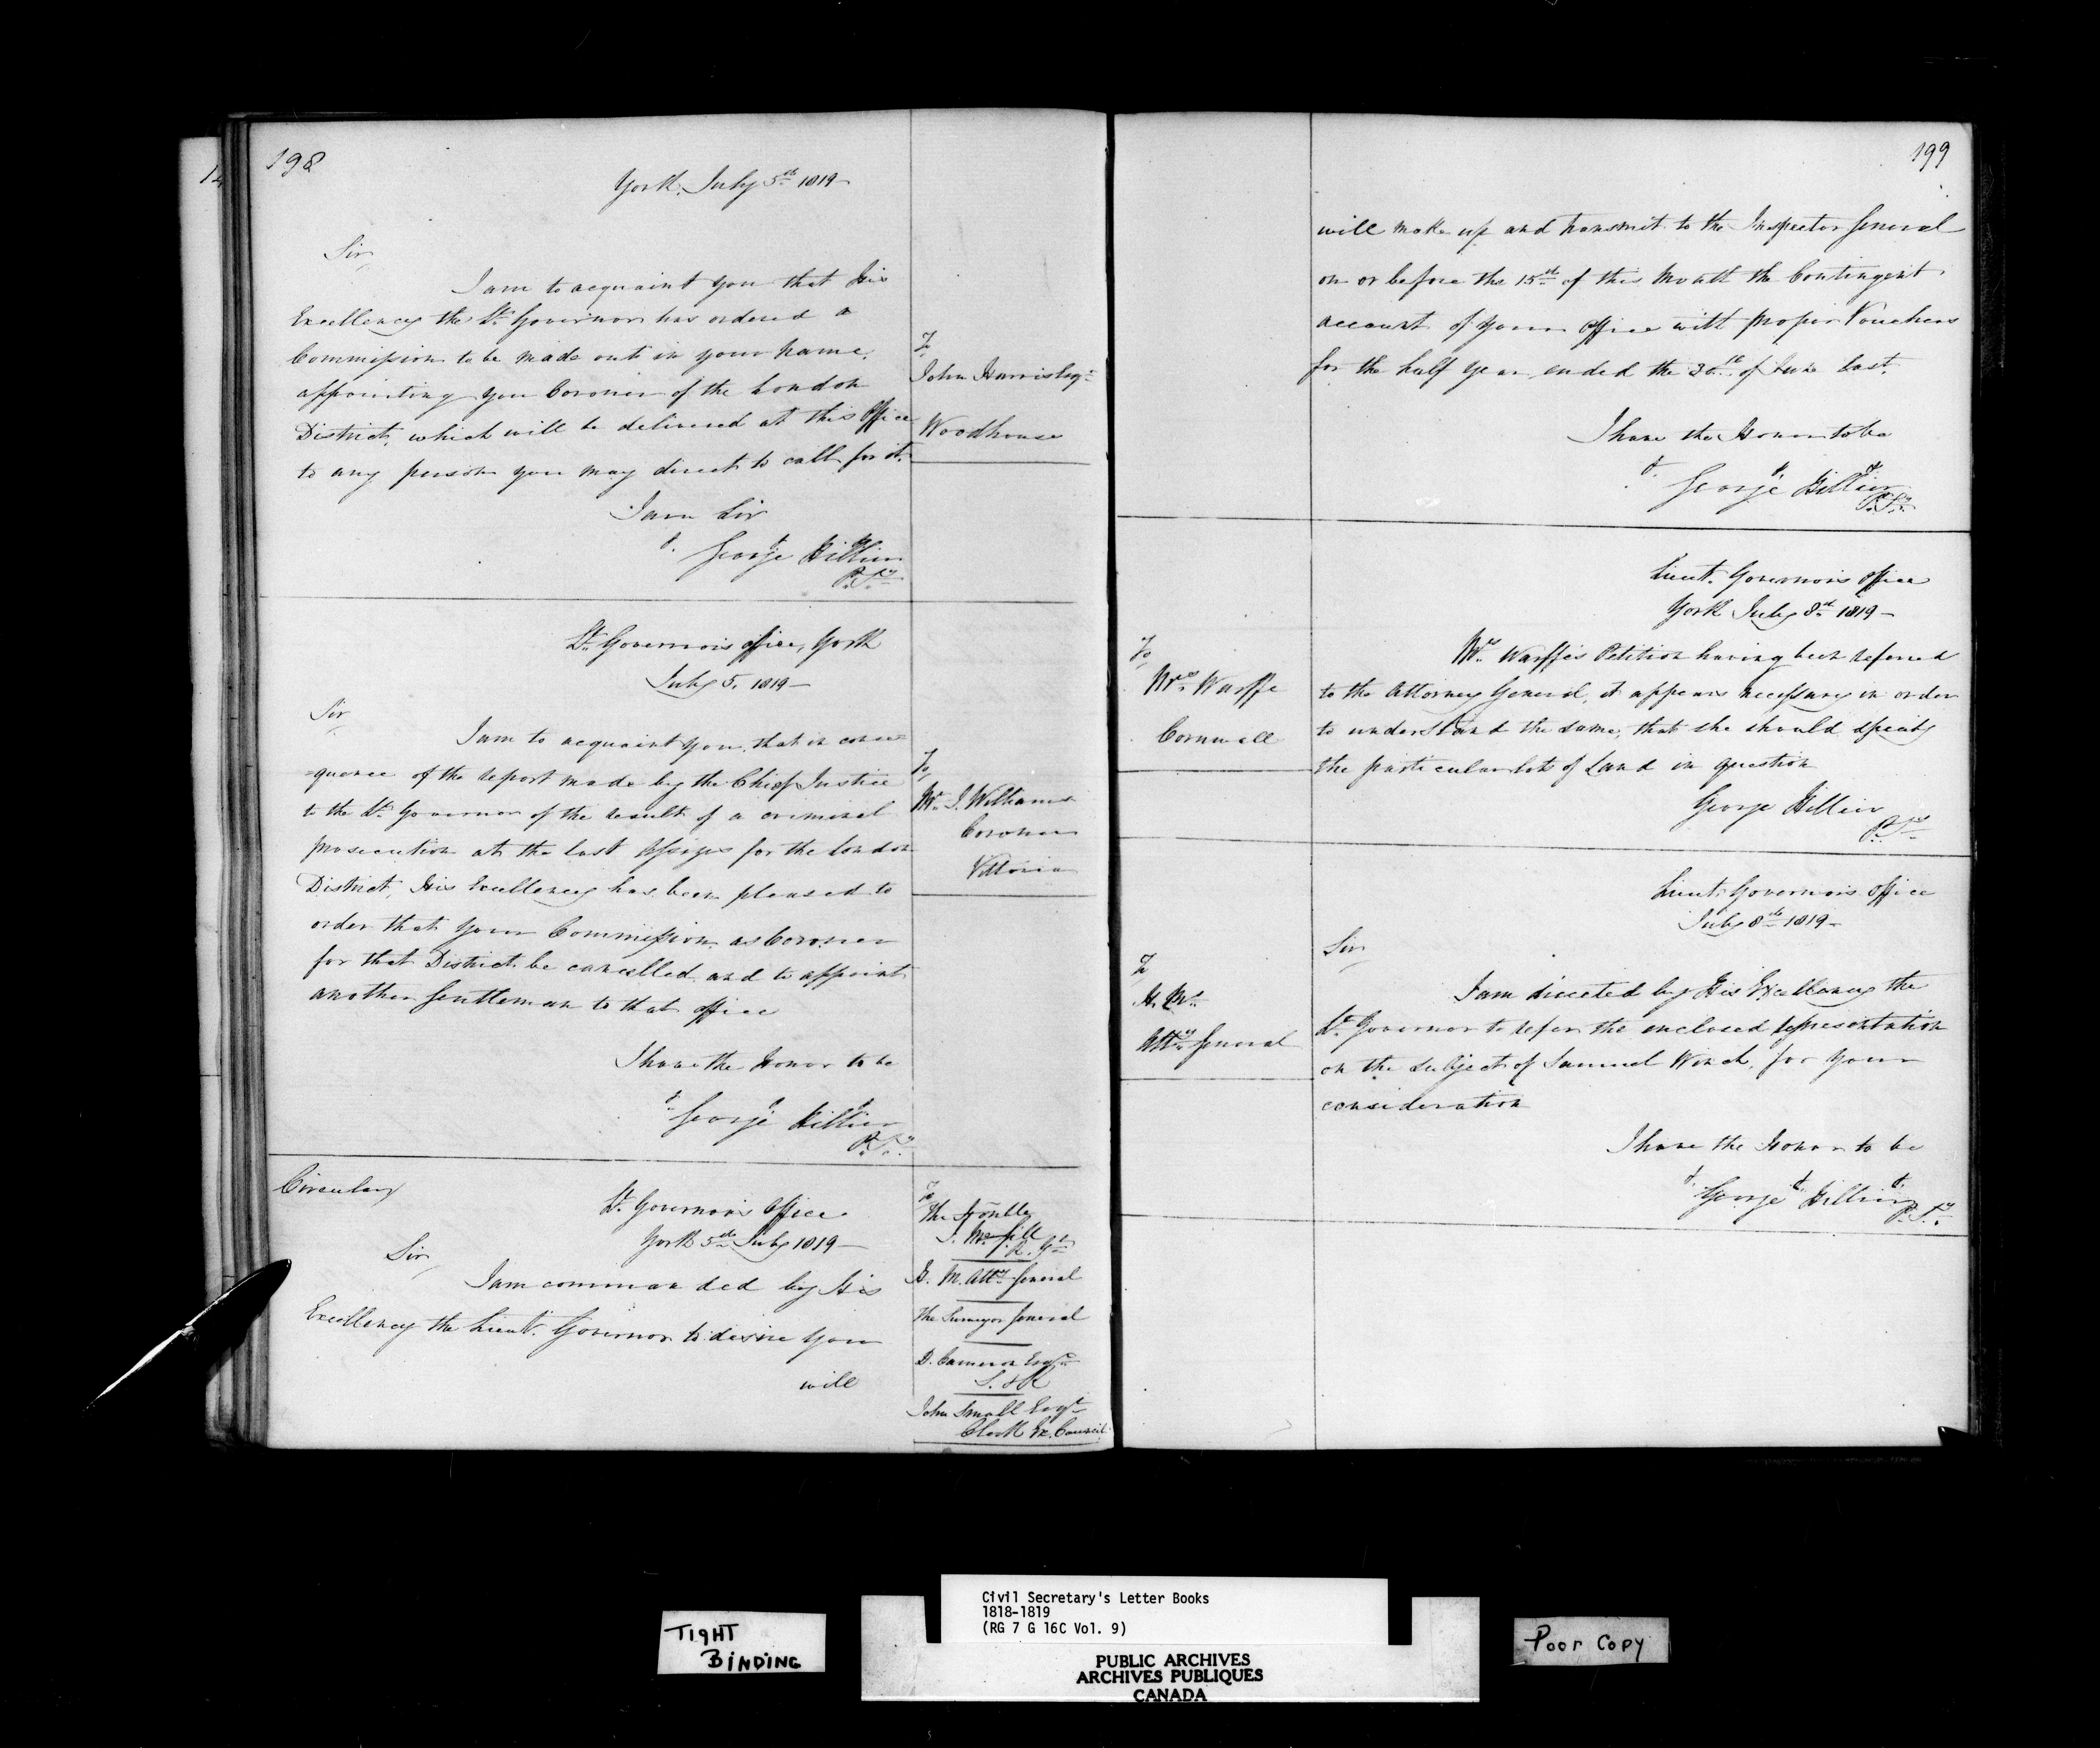 198
York, July 5th 1819
Sir
I am to acquaint you that His
Excellency the Lt. Governor has ordered a
Commission to be made out in your name,
appointing you Coroner of the London
District, which will be delivered at this Office
to any person you may direct to call for it.
I am Sir
George Hillier
P. Sy.
To
John Harris Esqr.
Woodhouse
Lt. Governor's office, York
July 5. 1819
Sir
I am to acquaint you, that in conse=
=quence of the report made by the Chief Justice
to the Lt. Governor of the result of a criminal
prosecution at the last Assizes for the London
District, His Excellency has been pleased to
order that your Commission as Coroner
for that District be cancelled and to appoint
another Gentleman to that office
I have the Honor to be
George Hillier
P. Sy.
To
Mr. J. Williams
Coroner
Vittoria
Circular
Lt. Governor's Office
York 5th July 1819
Sir
I am commanded by His
Excellency the Lieut. Governor to desire you
will
To
The Honble
J. McGill
H. M. Atty. General
The Surveyor General
D. Cameron Esqr.
S. & R
John Small Esqr.
Clerk Ex. Council
199
will make up and transmit to the Inspector General
on or before the 15th of this Month the Contingent
account of your office with proper Vouchers
for the half year ended the 30th of June last.
I have the Honor to be
George Hillier
P. Sy.
Lieut. Governor's office
York July 8th 1819
Mrs. Warffe's Petition having been referred
to the Attorney General, it appears necessary in order
to understand the same, that she should specify
the particular lots of Land in question
George Hillier
P. Sy.
To
Mrs. Warffe
Cornwall
Lieut. Governor's office
July 8th 1819
Sir
I am directed by His Excellency the
Lt. Governor to refer the enclosed representation
on the subject of Samuel Winch, for your
consideration
I have the Honor to be
George Hillier
P. Sy.
To
H. M.
Atty. General
TIGHT
BINDING
Civil Secretary's Letter Books
1818-1819
(RG 7 G 16C Vol. 9)
PUBLIC ARCHIVES
ARCHIVES PUBLIQUES
CANADA
Poor Copy